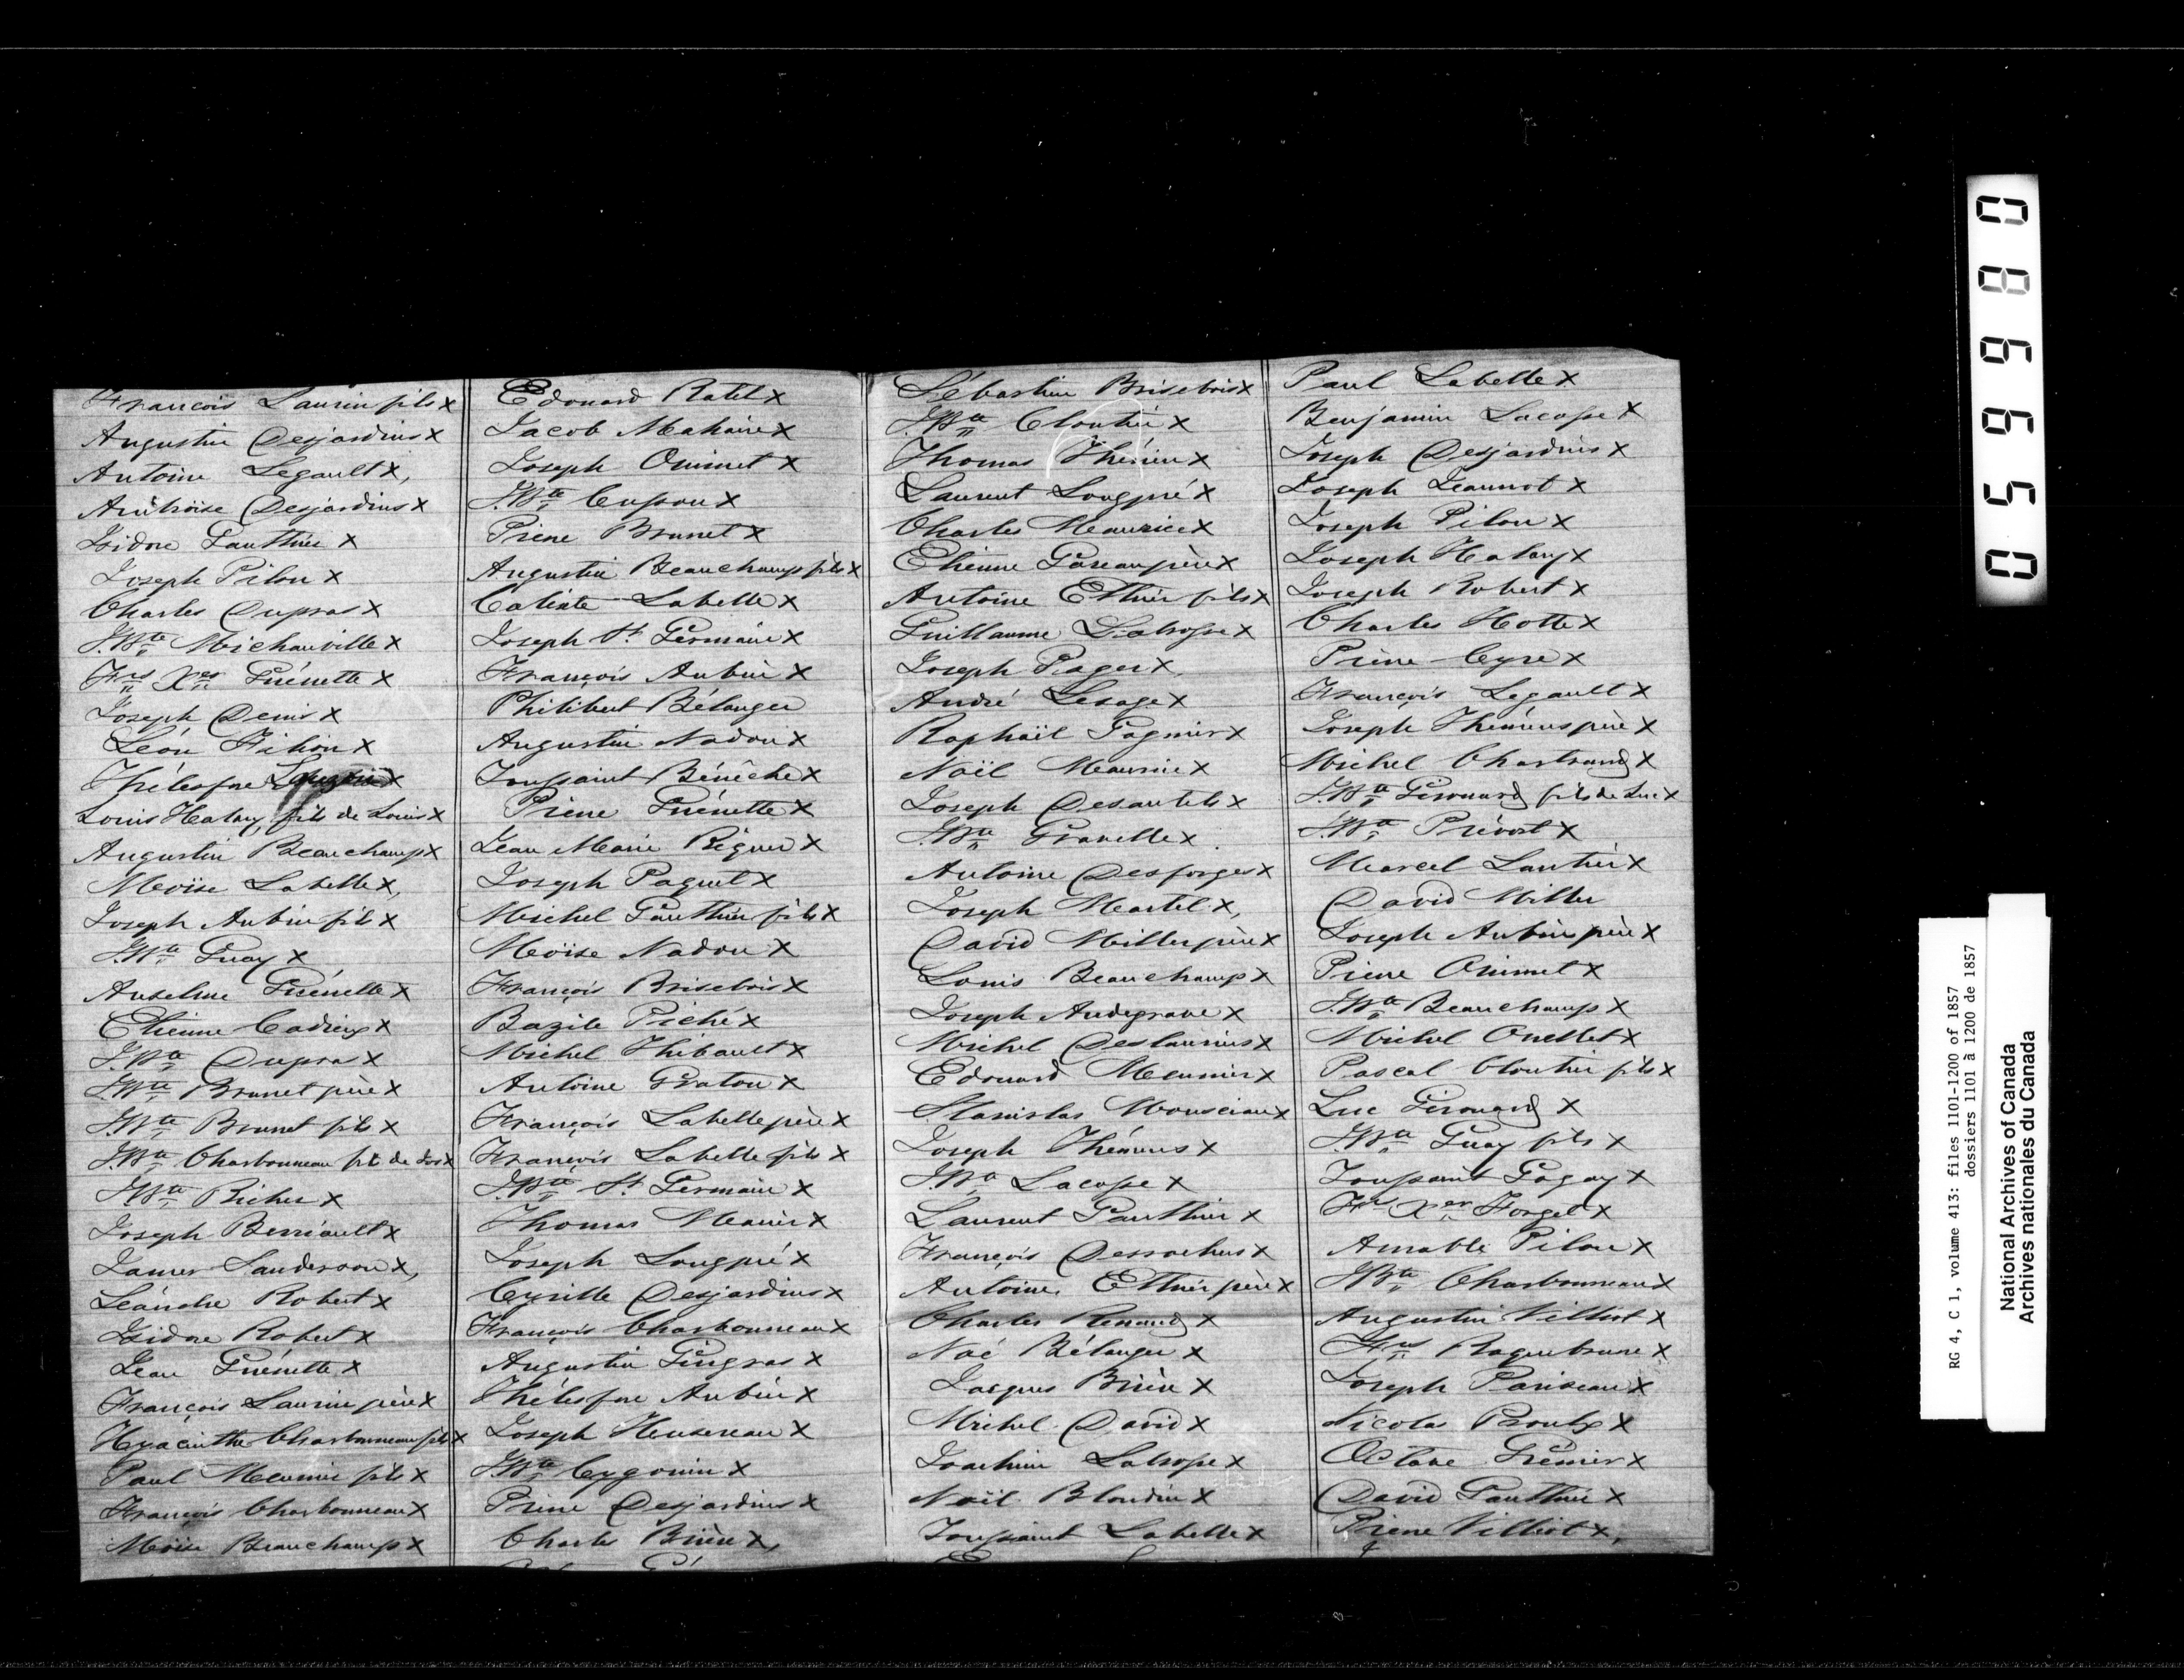 François Laurin fils x
Augustin Desjardins x
Antoine Legault x,
Ambroise Desjardins x
Isidore Gauthier x
Joseph Pilon x
Charles Dupras x
J. Bte Michauville x
Frs Xer Guénette x
Joseph Denis x
Léon Filion x
Thélesfore
Louis Halary, fils de Louis x
Augustin Beauchamp x
Moïse Labelle x,
Joseph Aubin fils x
J. Bte Guay x
Anselme Guénette x
Etienne Cadieux x
J. Bte Dupras x
J. Bte Brunet père x
J. Bte Brunet fils x
J. Bte Charbonneau fils de Jos x
J. Bte Richer x
Joseph Berriault x
James Sanderson x,
Léandre Robert x
Isidore Robert x
Jean Guénette x
François Laurin père x
Hyacinthe Charbonneau fils x
Paul Meunier fils x
François Charbonneau x
Moïse Beauchamp x
Edouard Ratel x
Jacob Mahaire x
Joseph Ouimet x
J. Bte Cusson x
Pierre Brunet x
Augustin Beauchamp fils x
Calixte Labelle x
Joseph St Germain x
François Aubin x
Philibert Bélanger
Augustin Nadon x
Toussaint Bénêche x
Pierre Guénette x
Jean Marie x
Joseph Paquet x
Michel Gauthier fils x
Moïse Nadon x
François Brisebois x
Bazile Piché x
Michel Thibault x
Antoine Graton x
François Labelle père x
François Labelle fils x
J. Bte St Germain x
Thomas x
Joseph Longpré x
Cyrille Desjardins x
François Charbonneau x
Augustin Gingras x
Thélesfore Aubin x
Joseph Heusereau x
J. Bte x
Pierre Desjardins x
Charle Brière x,
Sébastien Brisebois x
J. Bte Cloutier x
Thomas Thérien x
Laurent Longpré x
Charles Maurice x
Etienne père x
Antoine Ethier fils x
Guillaume Latrosse x
Joseph Pager x
André Lesage x
Raphaël Gagnier x
Noël x
Joseph Desautels x
J. Bte Gravelle x
Antoine Desforges x
Joseph Martel x,
David Miller père x
Louis Beauchamp x
Joseph Andegrave x
Michel Deslauriers x
Edouard Meunier x
Stanislas Mousseau x
Joseph Thémens x
J. Bte Lacosse x
Laurent Gauthier x
François Desrochers x
Antoine Ethier père x
Charles Renaud x
Noé Bélanger x
Jacques Brière x
Michel David x
Joachim Latrosse x
Noël Blondin x
Toussaint Labelle x
Paul Labelle x
Benjamin Lacosse x
Joseph Desjardins x
Joseph Jeannot x
Joseph Pilon x
Joseph Halary x
Joseph Robert x
Charles Hotte x
Pierre Cyre x
François Legault x
Joseph Thémens père x
Michel Chartrand x
J. Bte Girouard fils de Luc x
J. Bte Prévost x
Marcel Lautier x
David Miller
Joseph Aubin père x
Pierre Ouimet x
J. Bte Beauchamp x
Michel Ouellet x
Pascal Cloutier fils x
Luc Girouard x
J. Bte Guay fils x
Toussaint x
Frs Xer Forget x
Amable Pilon x
J. Bte Charbonneau x
Augustin Villiot x
Frs Roquebrune x
Joseph Pariseau x
Nicolas Proulx x
Octave Grénier x
David Gauthier x
Pierre Villiot x,
059980
RG 4, C 1, volume 413: files 1101-1200 of 1857
dossiers 1101 à 1200 de 1857
National Archives of Canada
Archives nationales du Canada